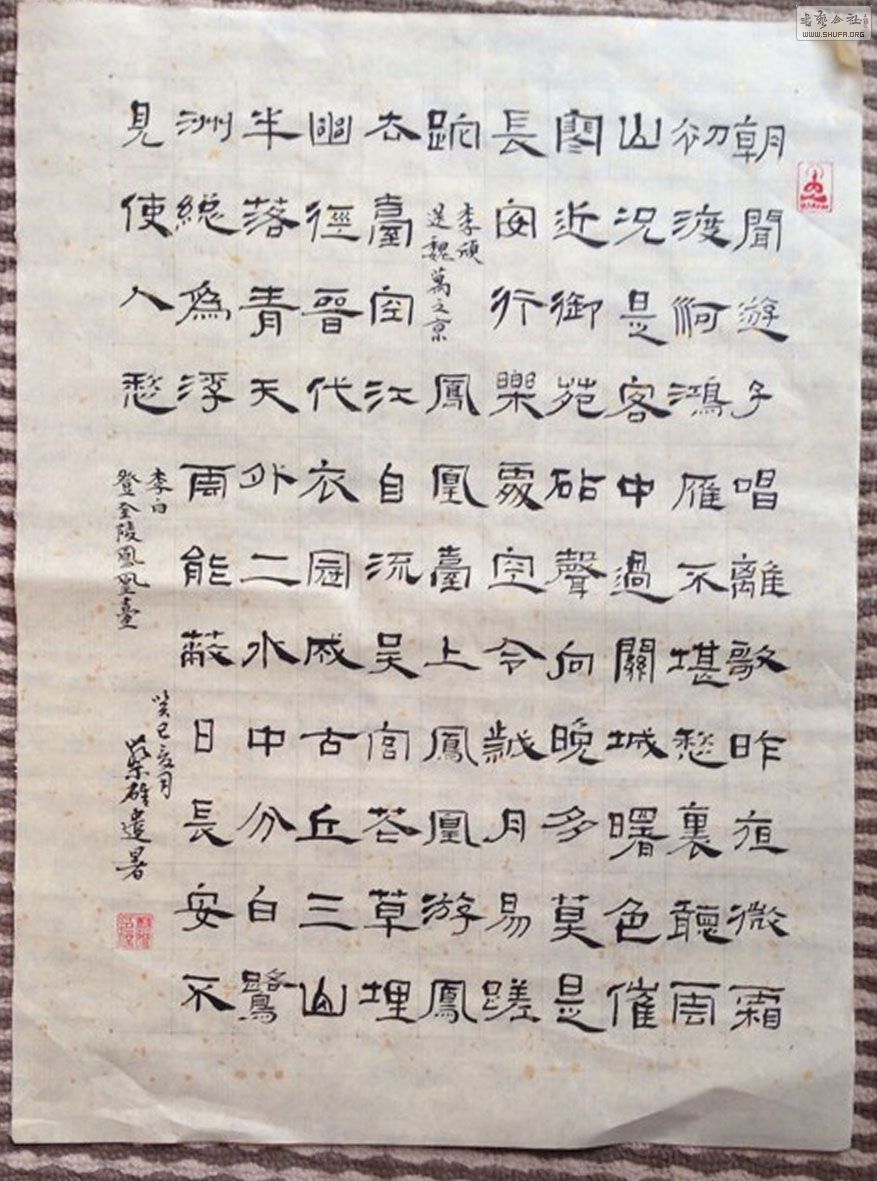 朝聞游子唱離歌昨夜微霜
初渡河鴻雁不堪愁裏聽雲
山況是客中過關城曙色催
寒近御苑砧聲向晚多莫是
長安行樂處空令歲月易蹉
跎
李頎
送魏萬之京
鳳凰臺上鳳凰游鳳
去臺空江自流吳宮花草埋
幽徑晉代衣冠成古丘三山
半落青天外二水中分白鷺
洲總爲浮雲能蔽日長安不
見使人愁
李白
登金陵鳳凰臺
癸巳亥月
遣暑
书艺公社
WWW.SHUFA.ORG